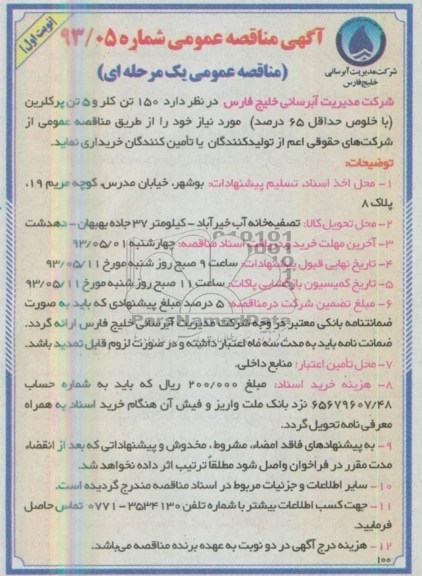 (نوبت اول)
آگهی مناقصه عمومی شماره ۹۳/۰۵
(مناقصه عمومی یک مرحله ای)
شرکت مدیریت آبرسانی
خلیج فارس
شرکت مدیریت آبرسانی خلیج فارس در نظر دارد ۱۵۰ تن کلر و ۵ تن پرکلرین
(با خلوص حداقل ۶۵ درصد) مورد نیاز خود را از طریق مناقصه عمومی از
شرکت‌های حقوقی اعم از تولیدکنندگان یا تأمین کنندگان خریداری نماید.
توضیحات:
۱- محل اخذ اسناد، تسلیم پیشنهادات: بوشهر، خیابان مدرس، کوچه مریم ۱۹،
پلاک ۸
۲- محل تحویل کالا: تصفیه‌خانه آب خیرآباد - کیلومتر ۳۷ جاده بهبهان - دهدشت
۳- آخرین مهلت خرید و دریافت اسناد مناقصه: چهارشنبه ۹۳/۰۵/۰۱
۴- تاریخ نهایی قبول پیشنهادات: ساعت ۹ صبح روز شنبه مورخ ۹۳/۰۵/۱۱
۵- تاریخ کمیسیون بازگشایی پاکات: ساعت ۱۱ صبح روز شنبه مورخ ۹۳/۰۵/۱۱
۶- مبلغ تضمین شرکت در مناقصه: ۵ درصد مبلغ پیشنهادی که باید به صورت
ضمانتنامه بانکی معتبر در وجه شرکت مدیریت آبرسانی خلیج فارس ارائه گردد.
ضمانت نامه باید به مدت سه ماه اعتبار داشته و در صورت لزوم قابل تمدید باشد.
۷- محل تأمین اعتبار: منابع داخلی.
۸- هزینه خرید اسناد: مبلغ ۲۰۰/۰۰۰ ریال که باید به شماره حساب
۶۵۶۷۹۶۰۷/۴۸ نزد بانک ملت واریز و فیش آن هنگام خرید اسناد به همراه
معرفی نامه تحویل گردد.
۹- به پیشنهادهای فاقد امضاء، مشروط، مخدوش و پیشنهاداتی که بعد از انقضاء
مدت مقرر در فراخوان واصل شود مطلقاً ترتیب اثر داده نخواهد شد.
۱۰- سایر اطلاعات و جزئیات مربوط در اسناد مناقصه مندرج گردیده است.
۱۱- جهت کسب اطلاعات بیشتر با شماره تلفن ۳۵۳۴۱۳۰-۰۷۷۱ تماس حاصل
فرمایید.
۱۲- هزینه درج آگهی در دو نوبت به عهده برنده مناقصه می‌باشد.
۱۰۰